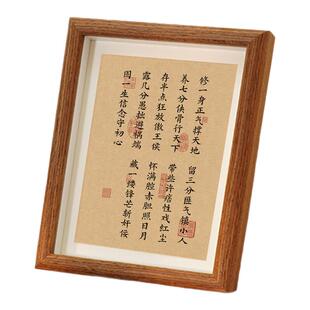 修一身正气撑天地
养七分侠骨行天下
存半点狂放傲王侯
露几分愚拙避祸端
固一生信念守初心
留三分匪气镇小人
带些许痞性戏红尘
怀满腔赤胆照日月
藏一缕锋芒斩奸佞